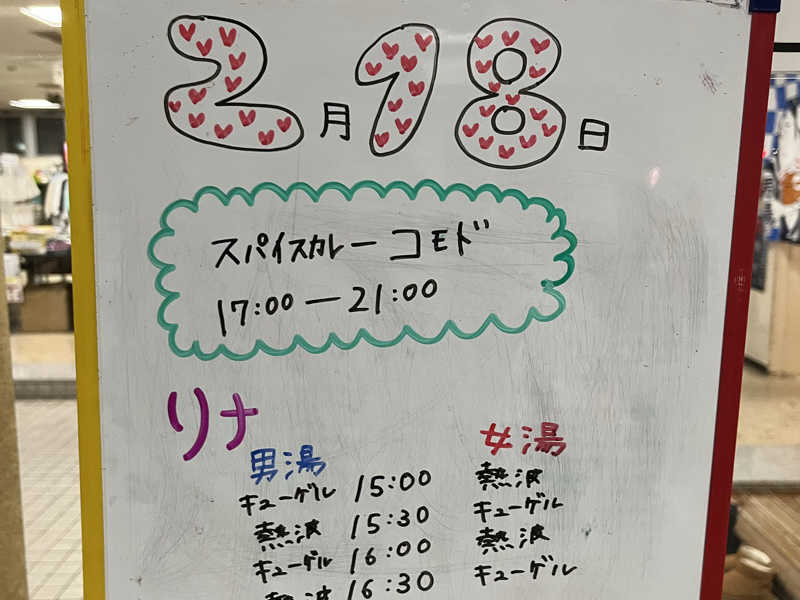 2月18日
スパイスカレー コモド
17:00 ー 21:00
リナ
男湯 女湯
キューゲル 15:00 熱波
熱波 15:30 キューゲル
キューゲル 16:00 熱波
熱波 16:30 キューゲル